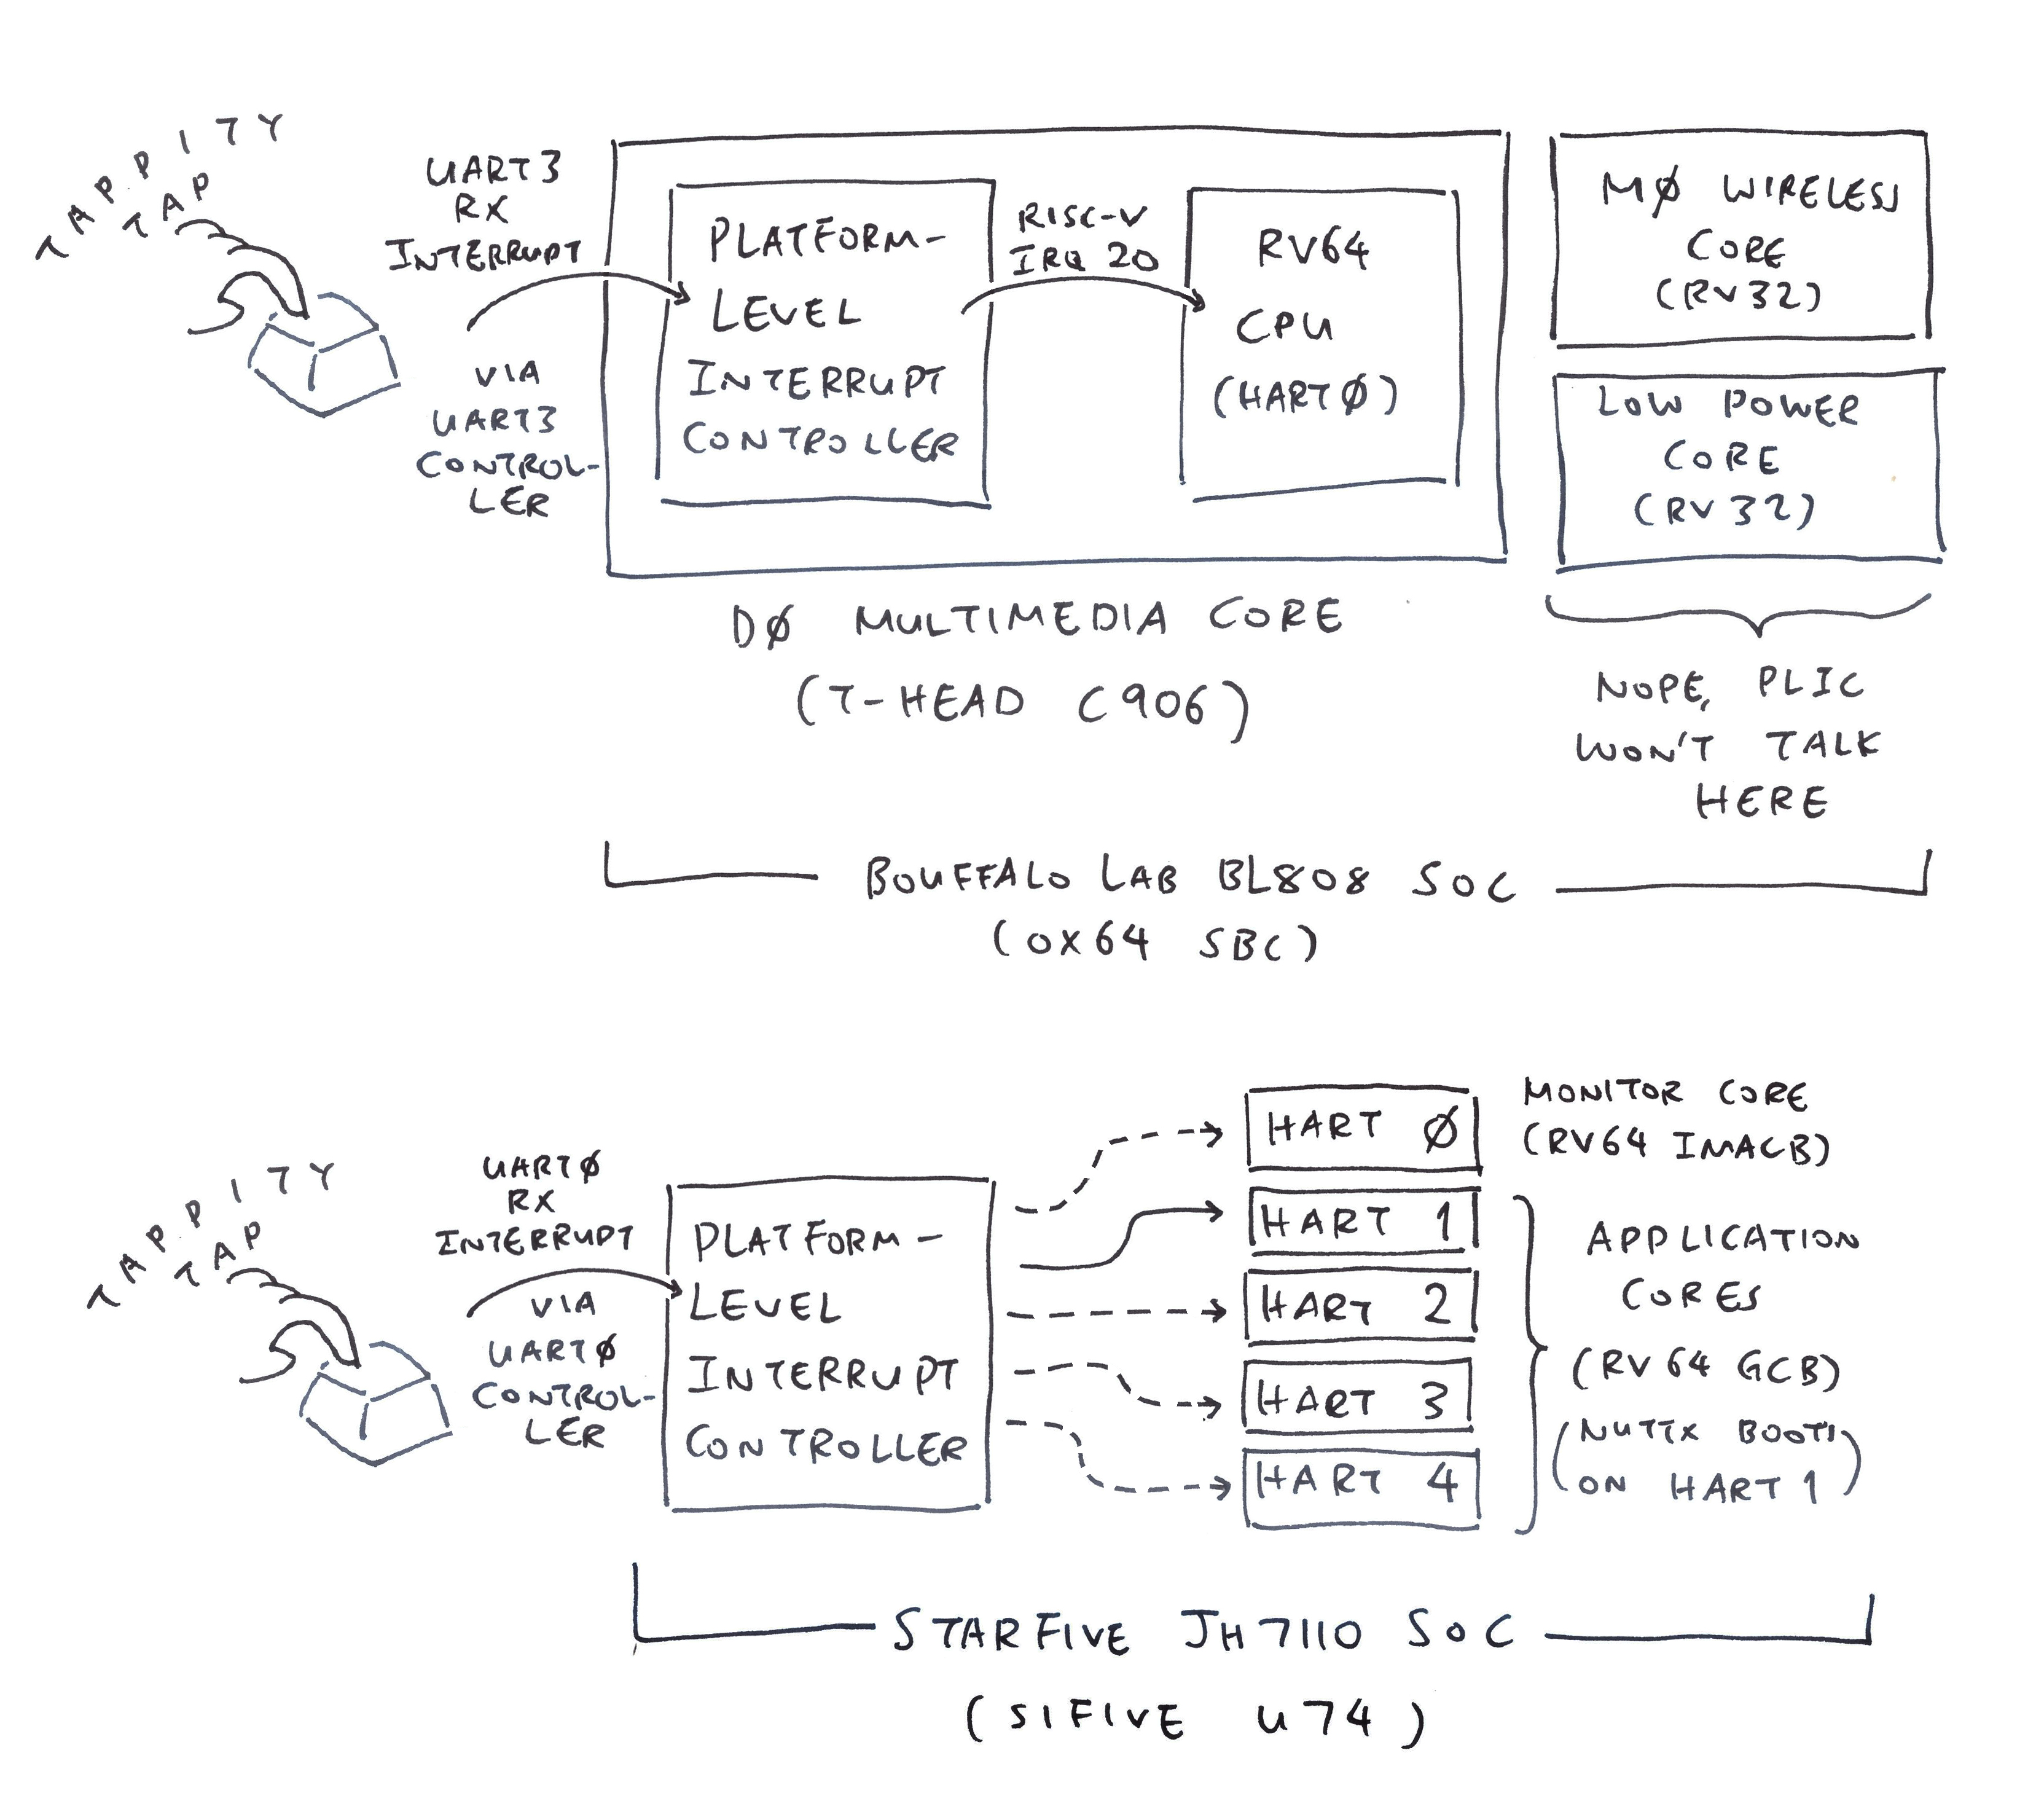 TAPPITY
TAP
UART3
RX
INTERRUPT
VIA
UART3
CONTROL-
LER
PLATFORM-
LEVEL
INTERRUPT
CONTROLLER
RISC-V
IRQ 20
RV64
CPU
(HARTØ)
MØ WIRELESS
CORE
(RV32)
LOW POWER
CORE
(RV32)
DØ MULTIMEDIA CORE
(T-HEAD C906)
NOPE, PLIC
WON'T TALK
HERE
BOUFFALO LAB BL808 SOC
(OX64 SBC)
TAPPITY
TAP
UARTØ
RX
INTERRUPT
VIA
UARTØ
CONTROL-
LER
PLATFORM-
LEVEL
INTERRUPT
CONTROLLER
HART Ø
HART 1
HART 2
HART 3
HART 4
MONITOR CORE
(RV64 IMACB)
APPLICATION
CORES
(RV64 GCB)
(NUTTX BOOTS
ON HART 1)
STARFIVE JH7110 SOC
(SIFIVE U74)